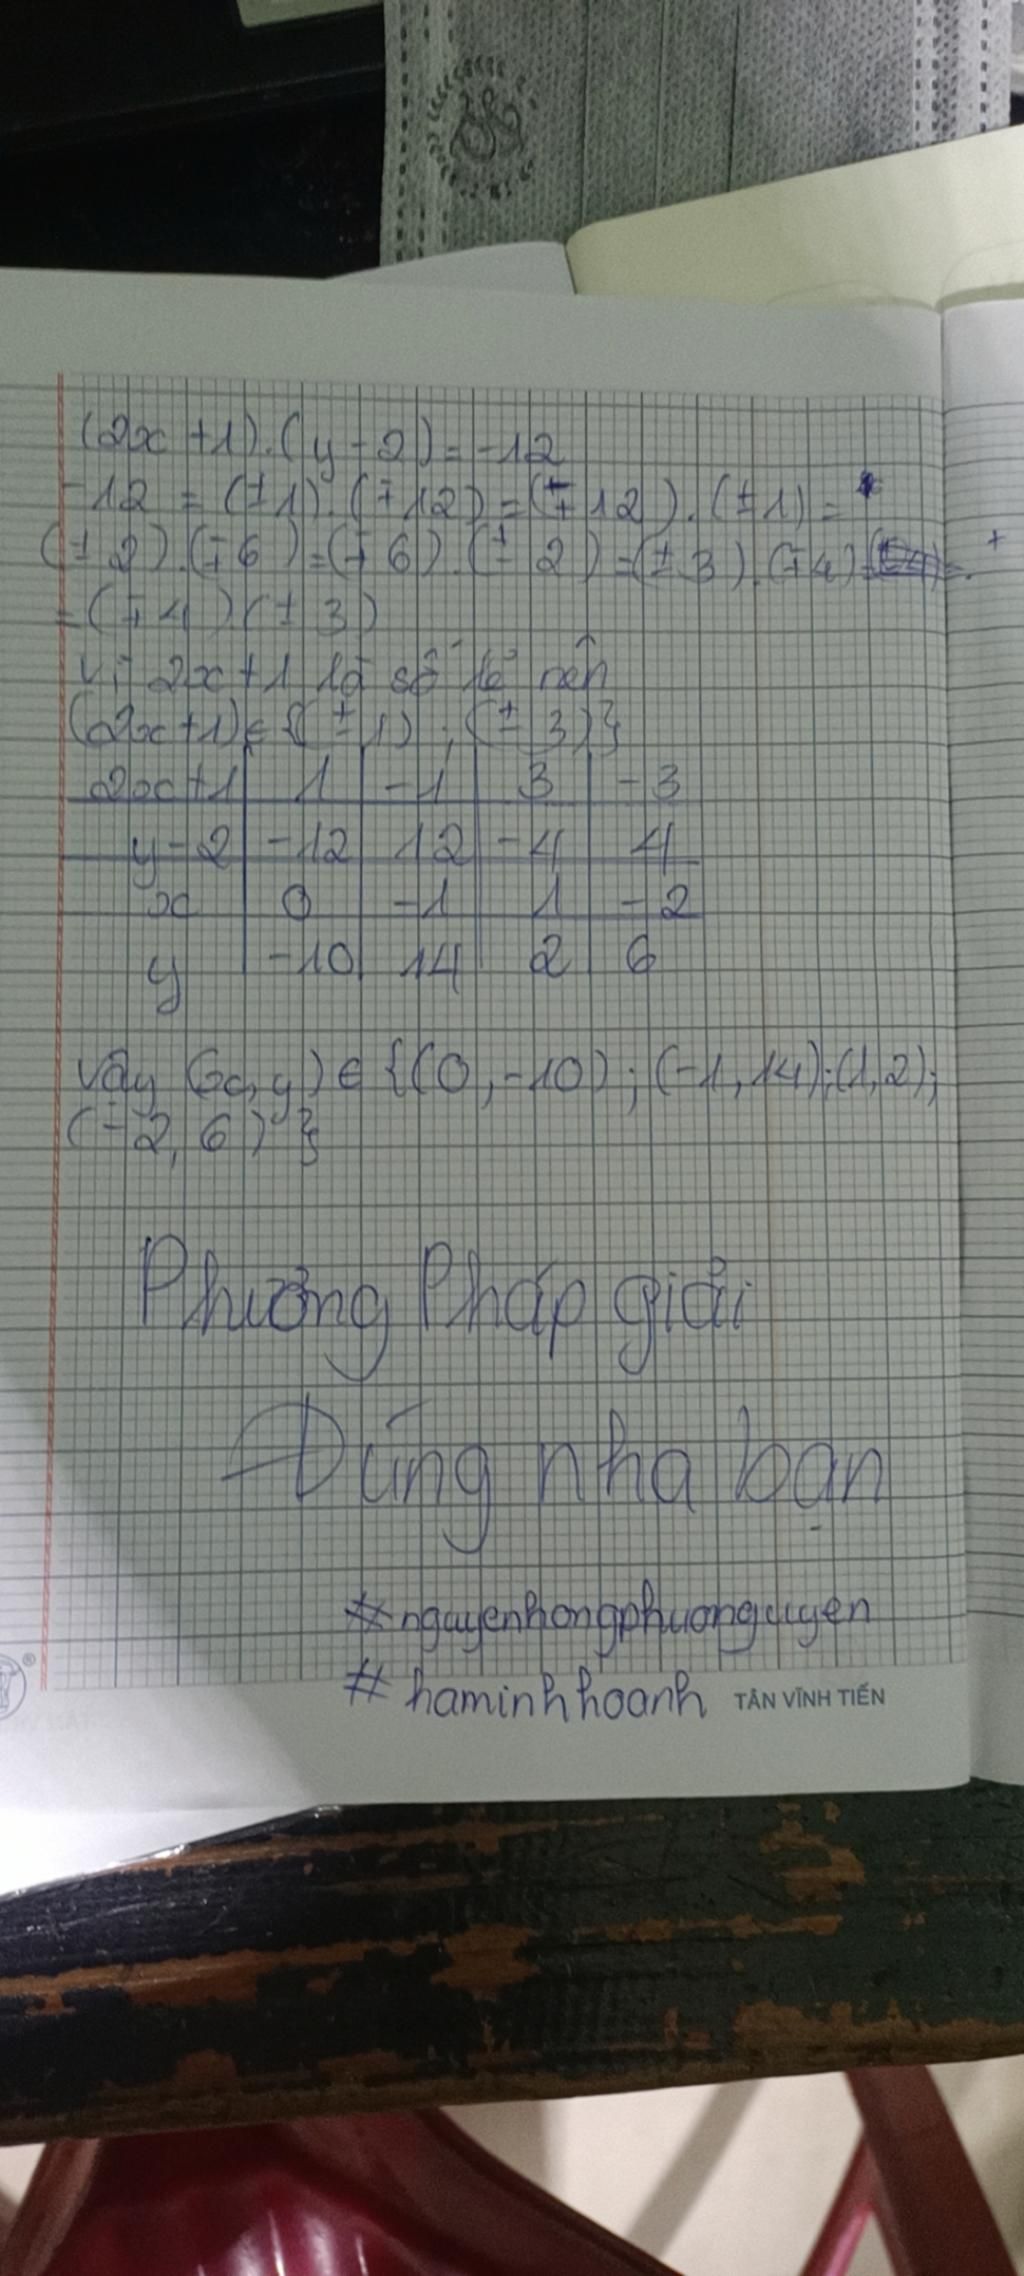 (2x+1).(y-2)=-12
-12 = (±1).(∓12)=(∓12).(±1)=
(±2)(∓6)=(∓6).(±2)=(±3).(∓4)=
=(∓4)(±3)
Vì 2x+1 là số lẻ nên
(2x+1)∈{(±1);(±3)}
2x+1 | 1 | -1 | 3 | -3
y-2 | -12 | 12 | -4 | 4
x | 0 | -1 | 1 | -2
y | -10 | 14 | 2 | 6
Vậy (x,y)∈{(0,-10);(-1,14);(1,2);
(-2,6)}
Phương Pháp giải
Đúng nha bạn
#nguyenhongphuonguyen
#haminhhoanh TÂN VĨNH TIẾN
®